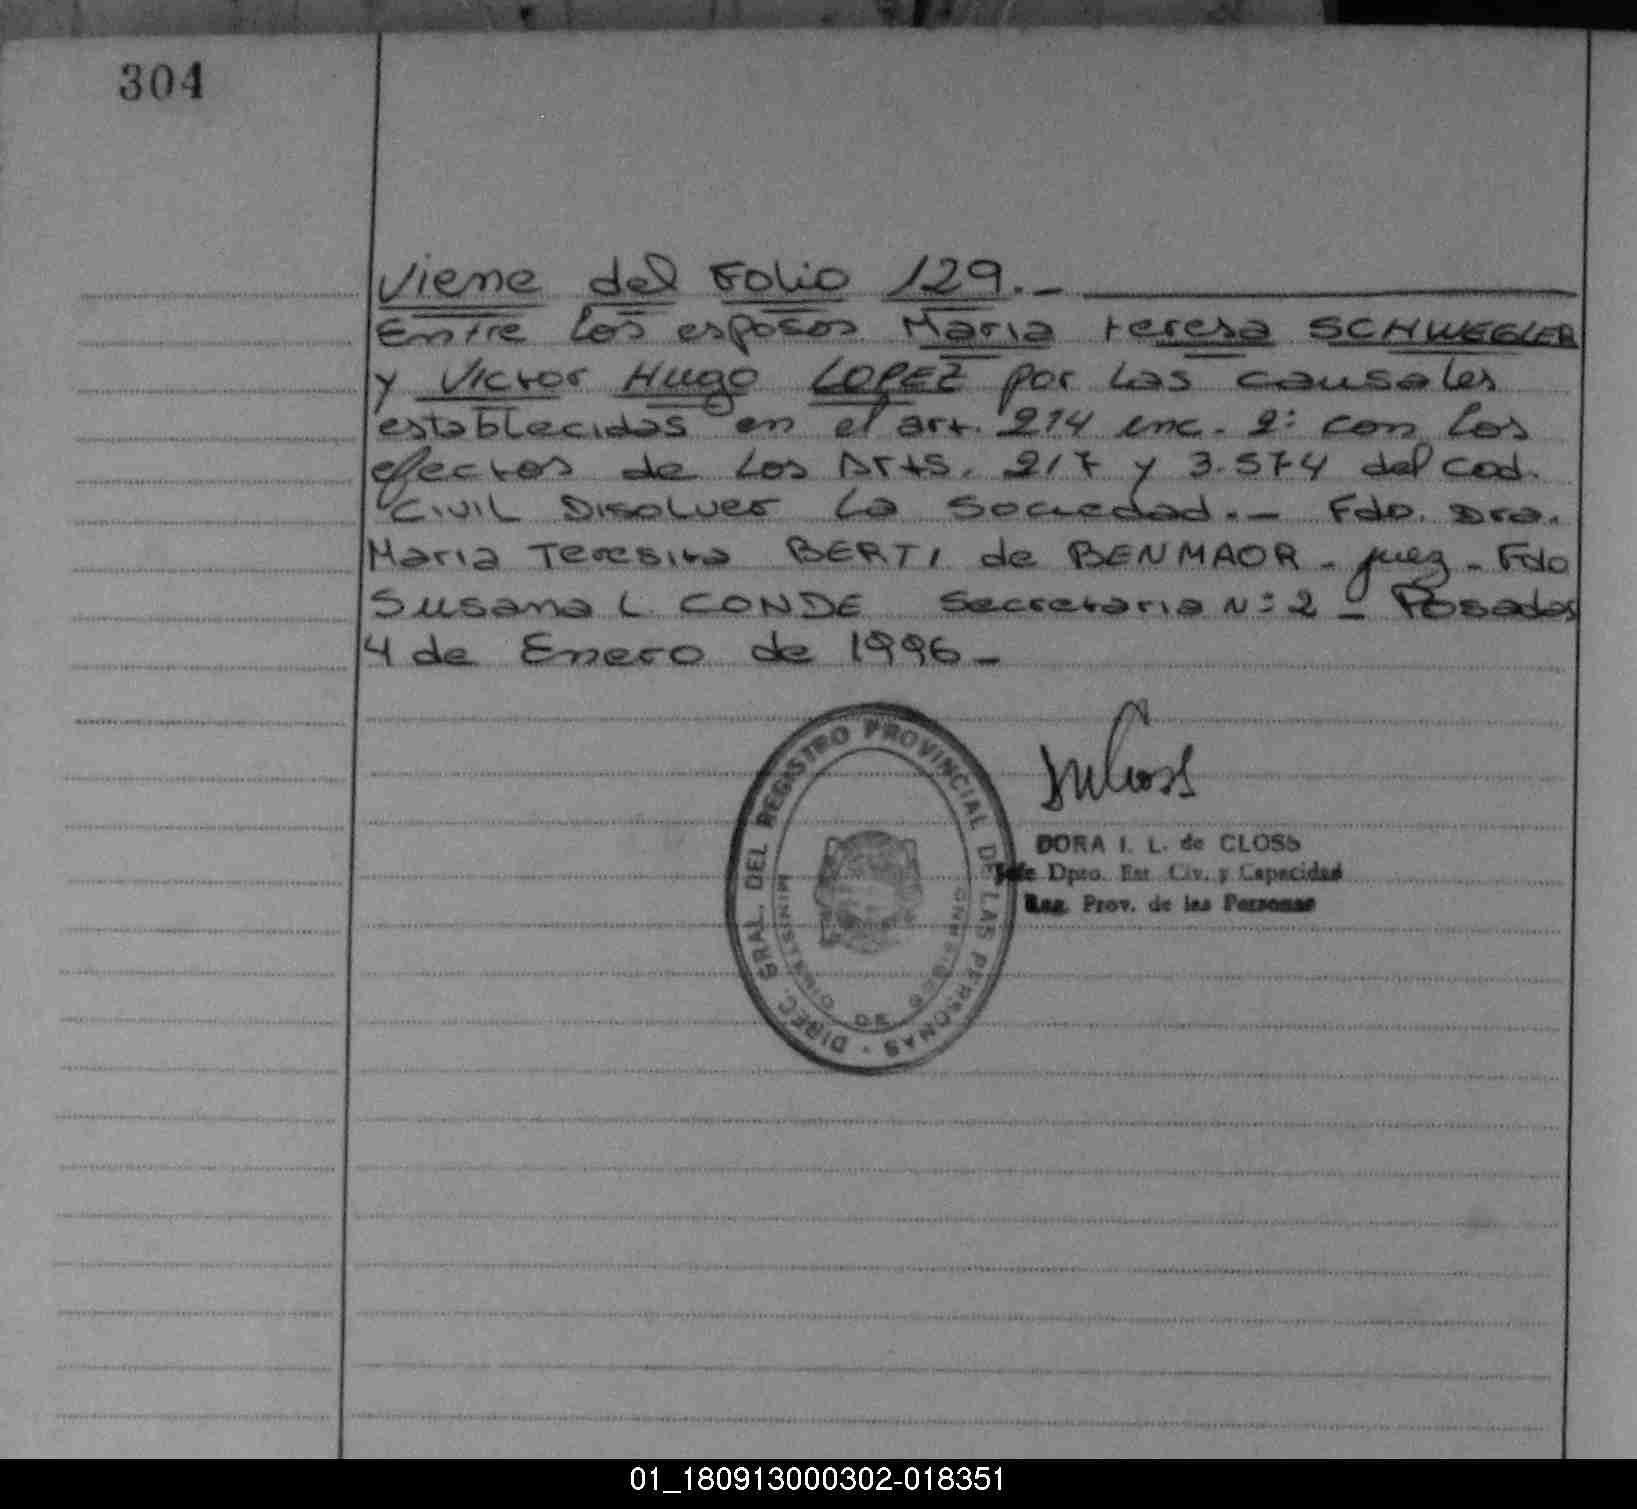 304
Viene del Folio 129._
Entre los esposos Maria teresa SCHWEGLER
y Victor Hugo LOPEZ por las causales
establecidas en el art. 214 inc. 2: con los
efectos de los Arts. 217 y 3.574 del cod.
Civil Disolver la Sociedad._ Fdo. Dra.
Maria Teresita BERTI de BENMAOR - juez - Fdo
Susana L. CONDE Secretaria Nº 2 - Posadas
4 de Enero de 1996_
DIREC. GRAL. DEL REGISTRO PROVINCIAL DE LAS PERSONAS
MINISTERIO DE GOBIERNO
DORA I. L. de CLOSS
Jefe Dpto. Est. Civ. y Capacidad
Reg. Prov. de las Personas
01_180913000302-018351